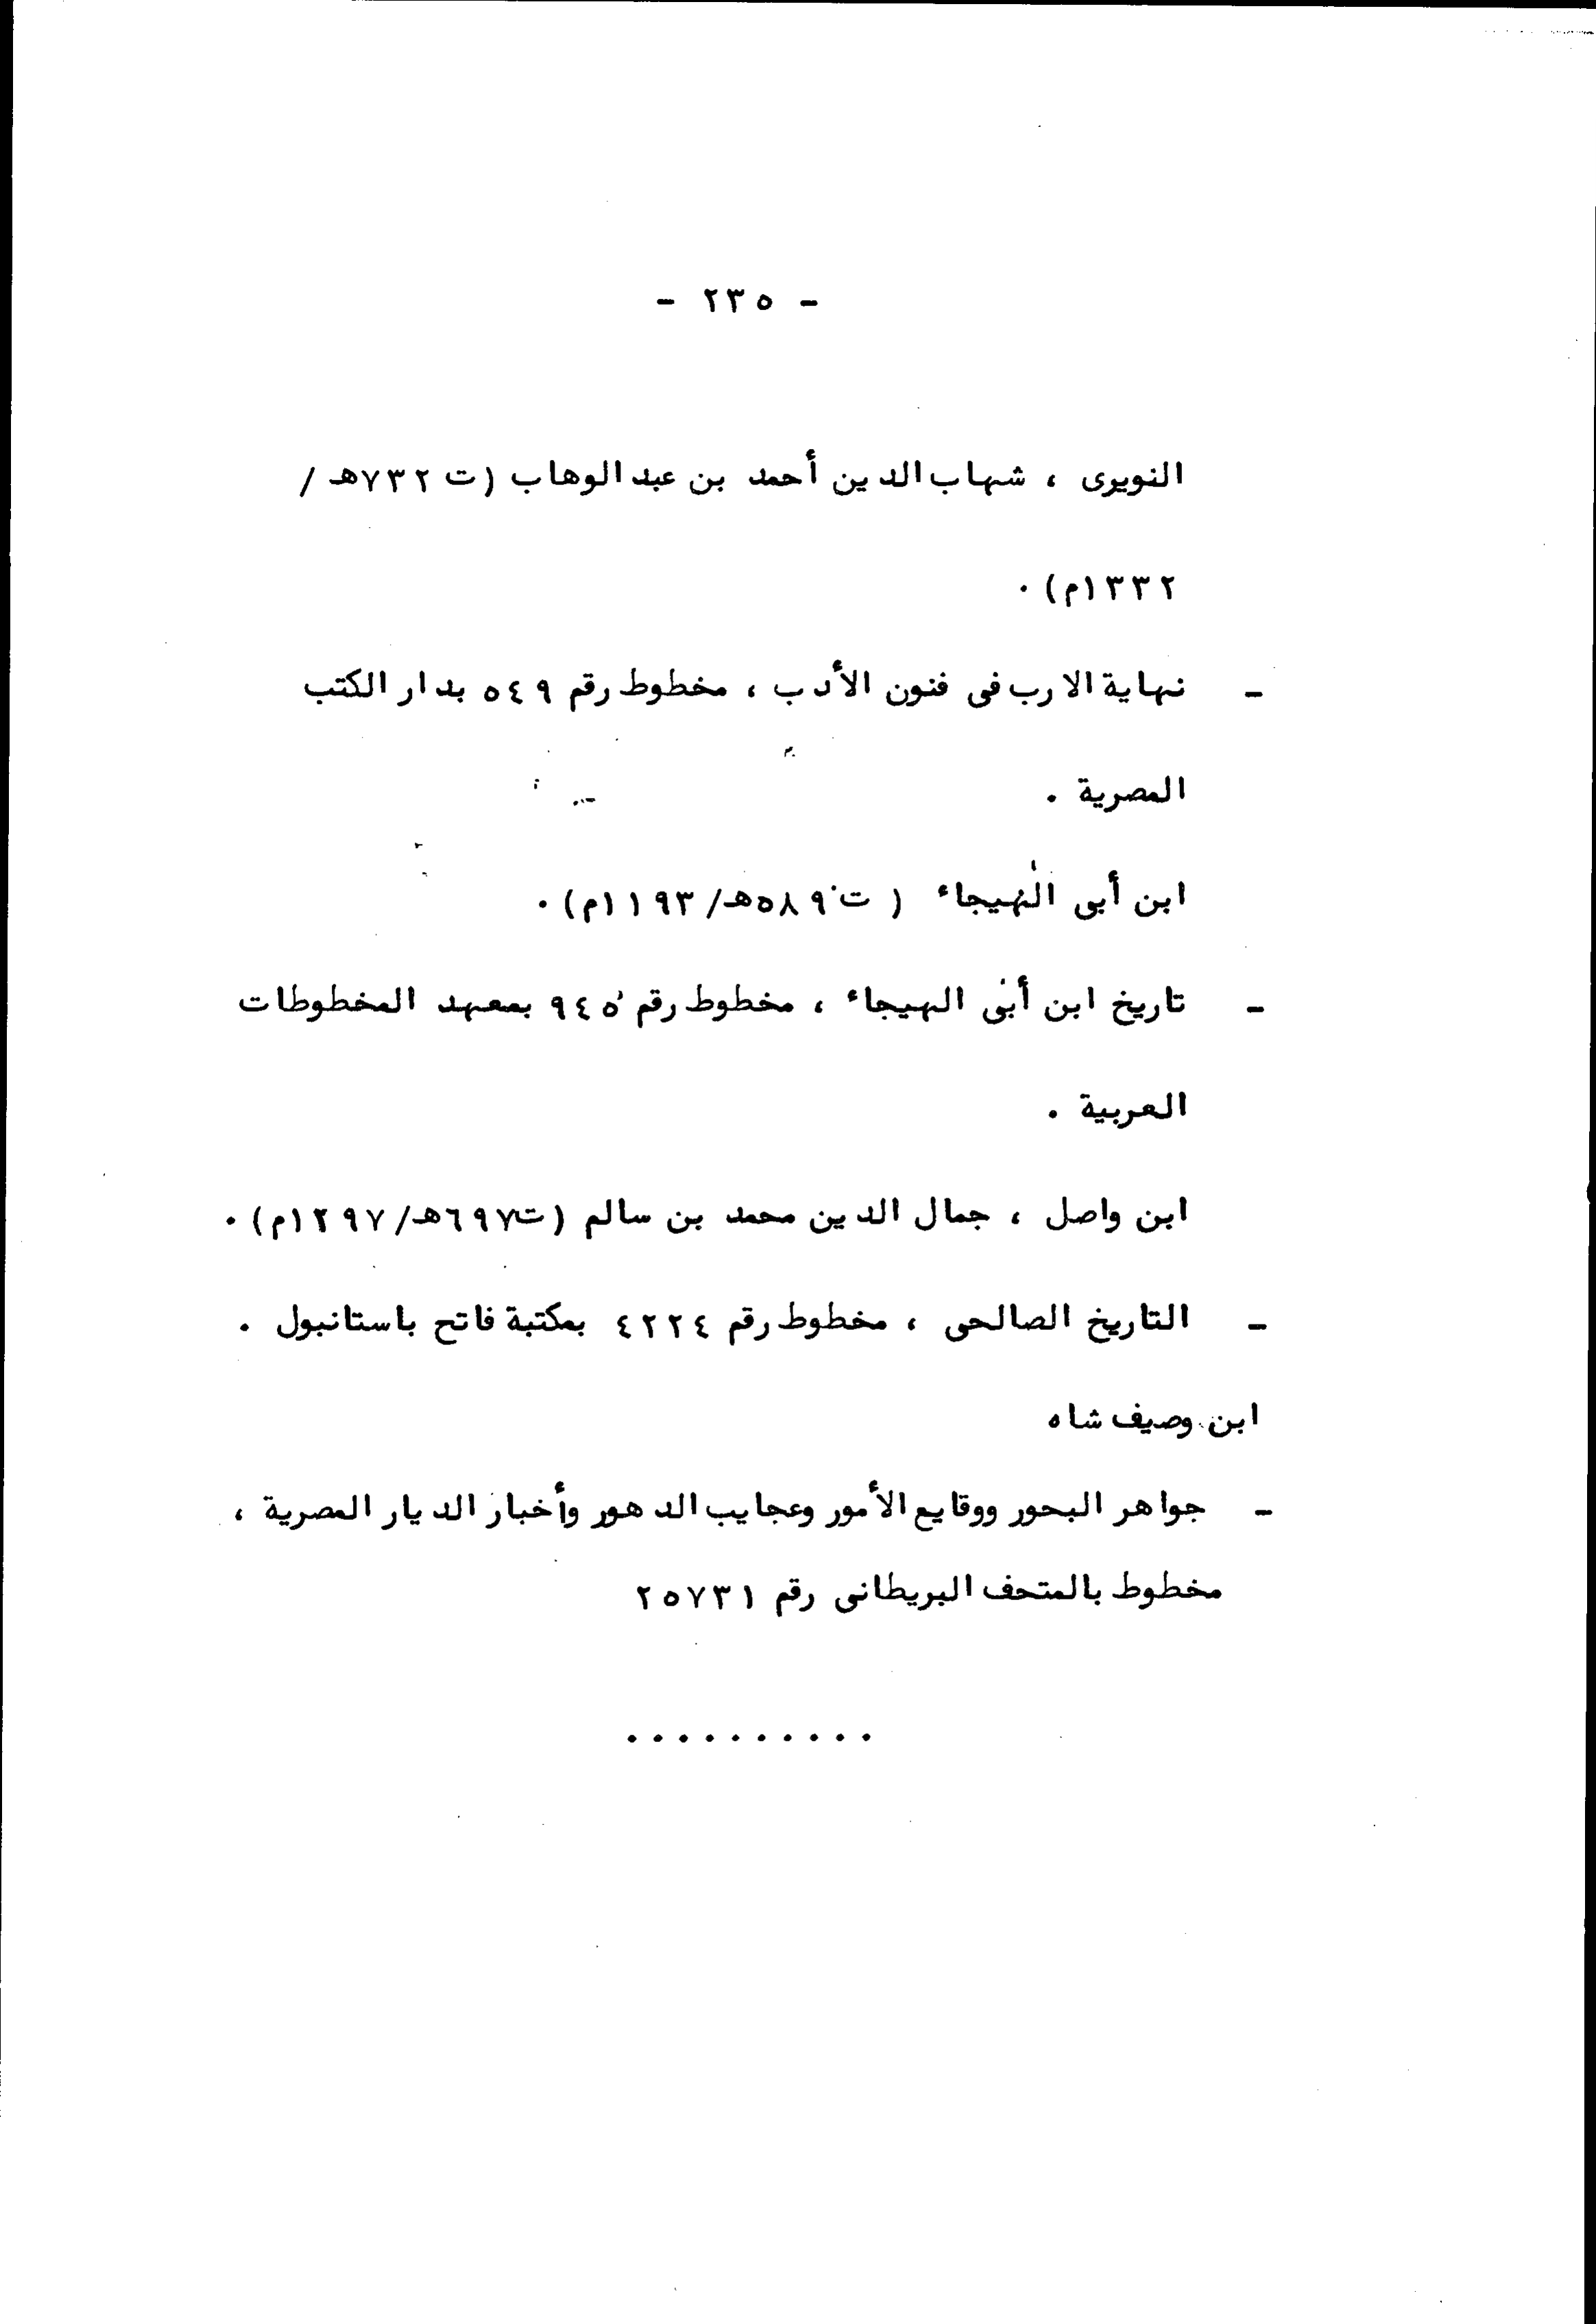 - ٢٣٥ -
النويرى ، شهاب الدين أحمد بن عبد الوهاب (ت ٧٣٢هـ /
١٣٣٢م) .
- نهاية الارب فى فنون الأدب ، مخطوط رقم ٥٤٩ بدار الكتب
المصرية .
ابن أبى الهيجاء ( ت ٥٨٩هـ/١١٩٣م) .
- تاريخ ابن أبى الهيجاء ، مخطوط رقم ٩٤٥ بمعهد المخطوطات
العربية .
ابن واصل ، جمال الدين محمد بن سالم (ت٦٩٧هـ/١٢٩٧م) .
- التاريخ الصالحى ، مخطوط رقم ٤٢٢٤ بمكتبة فاتح باستانبول .
ابن وصيف شاه
- جواهر البحور ووقايع الأمور وعجايب الدهور وأخبار الديار المصرية ،
مخطوط بالمتحف البريطانى رقم ٢٥٧٣١
. . . . . . . . . .